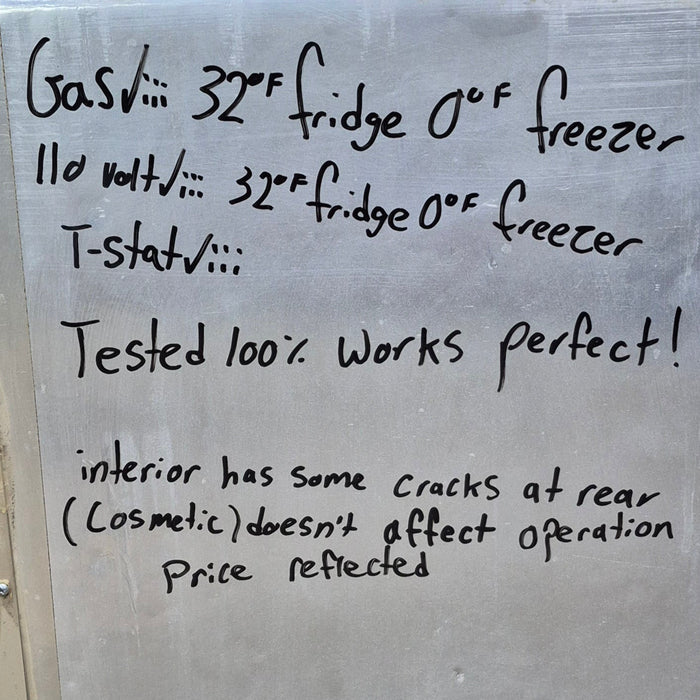 Gas√::: 32°F fridge 0°F freezer
110 volt√::: 32°F fridge 0°F freezer
T-stat√:::
Tested 100% works perfect!
interior has some cracks at rear
(Cosmetic) doesn't affect operation
Price reflected